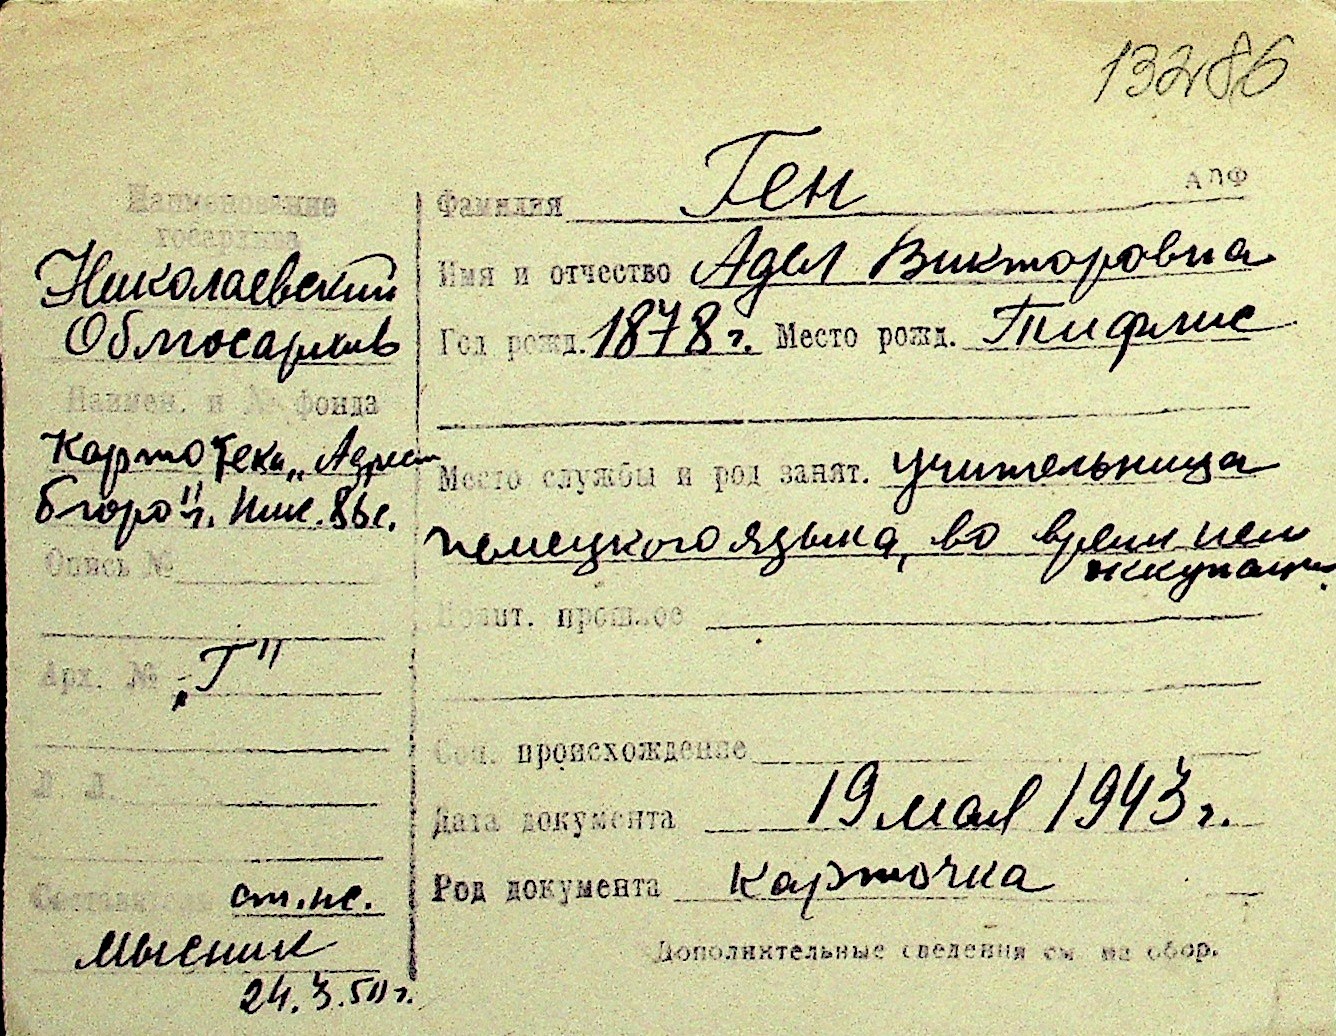 13286
АПФ
Наименование
госархива
Николаевский
Облгосархив
Наимен. и № фонда
Картотека „Адресн
бюро" г. Ник.
Опись №
Арх. № „Г"
Л. Л.
Составитель ст. нс.
Мысник
24.3.50 г.
Фамилия Ген
Имя и отчество Адел Викторовна
Год рожд. 1878 г. Место рожд. Тифлис
Место службы и род занят. учительница
немецкого языка, во время нем
оккупации.
Полит. прошлое
Соц. происхождение
Дата документа 19 мая 1943 г.
Род документа карточка
Дополнительные сведения см. на обор.